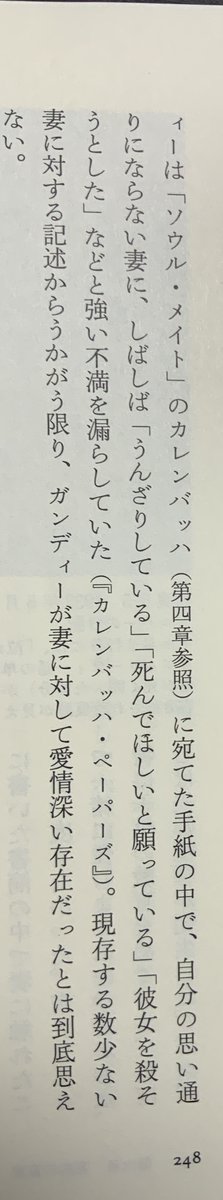 ィーは「ソウル・メイト」のカレンバッハ（第四章参照）に宛てた手紙の中で、自分の思い通
りにならない妻に、しばしば「うんざりしている」「死んでほしいと願っている」「彼女を殺そ
うとした」などと強い不満を漏らしていた（『カレンバッハ・ペーパーズ』）。現存する数少ない
妻に対する記述からうかがう限り、ガンディーが妻に対して愛情深い存在だったとは到底思え
ない。
248